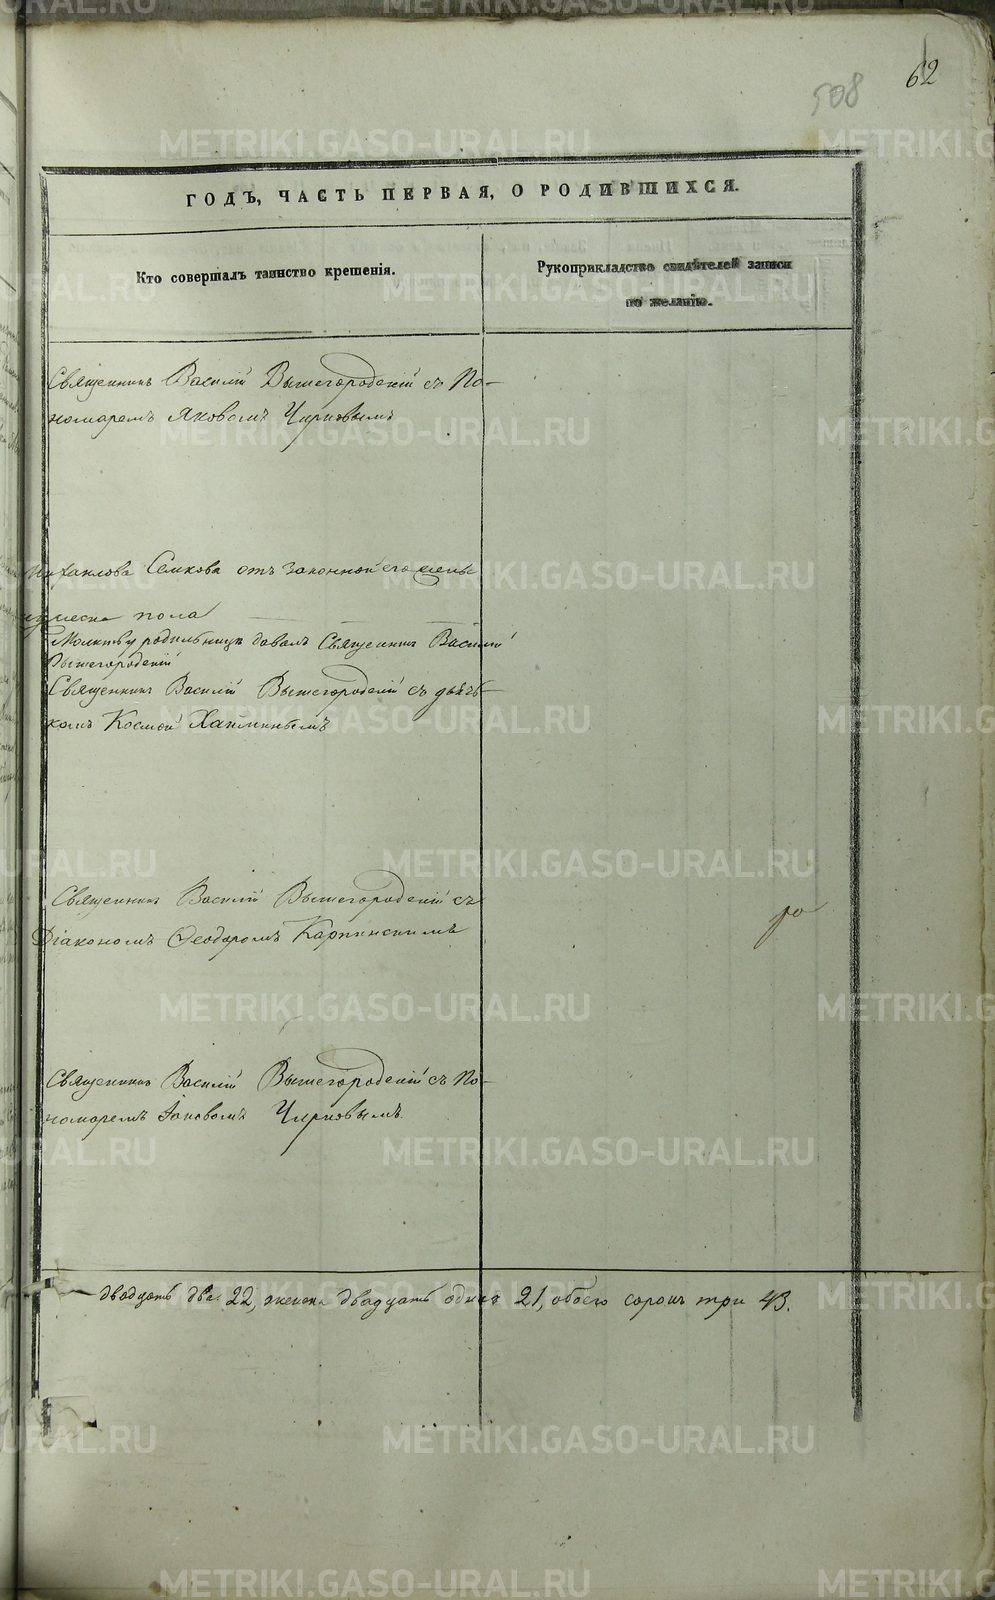 62
508
ГОДЪ, ЧАСТЬ ПЕРВАЯ, О РОДИВШИХСЯ.
Кто совершалъ таинство крещенія.
Рукоприкладство свидѣтелей записи
по желанію.
Священникъ Василій Вышегородскій съ По-
номаремъ Яковомъ Чирковымъ
Семкова отъ законной его жены
пола
Молитву родильницѣ давалъ Священникъ Василій
Вышегородскій
Священникъ Василій Вышегородскій съ дьяч-
комъ Космой
Священникъ Василій Вышегородскій съ
Діакономъ Ѳеодоромъ Карпинскимъ
Священникъ Василій Вышегородскій съ По-
номаремъ Іаковомъ Чирковымъ.
двадцать два 22, женска двадцать одинъ 21, обоего сорокъ три 43.
METRIKI.GASO-URAL.RU